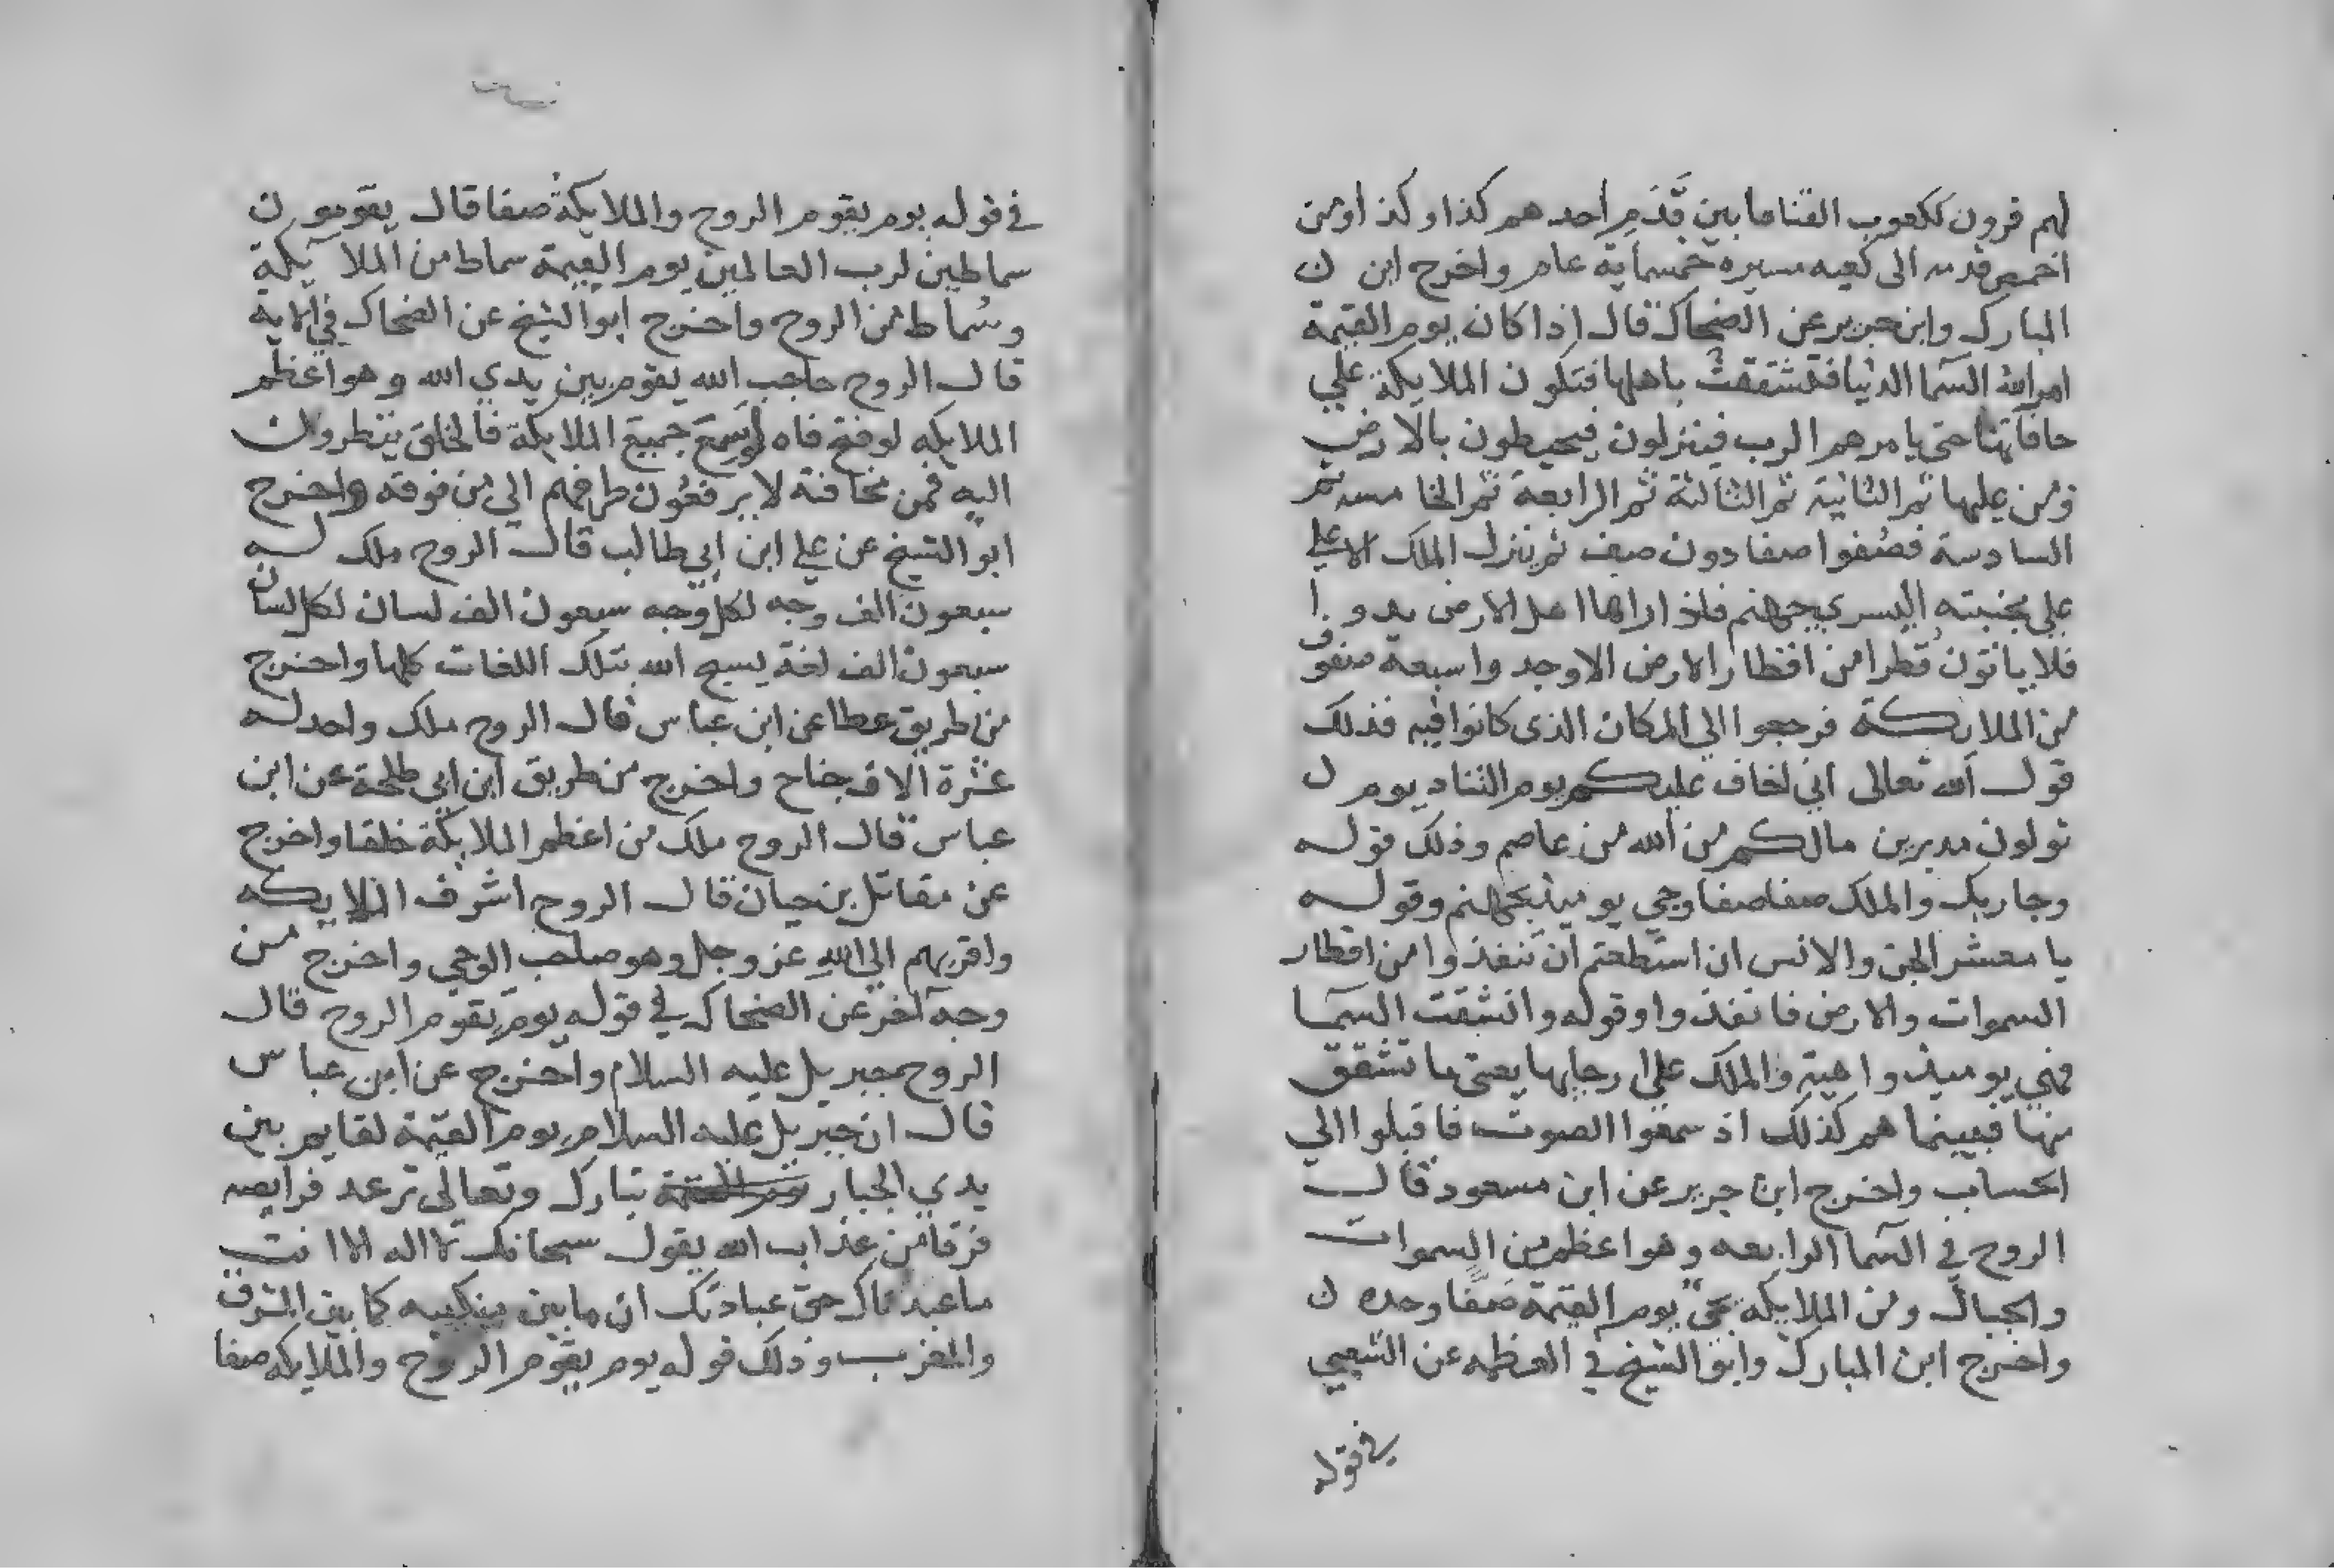 لهم قرون ككعوب القنا ما بين قدم احدهم كذا وكذا ومن
اخمص قدمه الى كعبه مسيرة خمسماية عام واخرج ابن
المبارك وابن جرير عن الضحاك قال اذا كان يوم القيمة
امر الله السما الدنيا فتشققت باهلها فتكون الملايكة علي
حافاتها حتى يامرهم الرب فينزلون فيحيطون بالارض
ومن عليها ثم الثانية ثم الثالثة ثم الرابعة ثم الخامسه ثم
السادسة فصفوا صفا دون صف ثم ينزل الملك الاعلي
علي مجنبته اليسري جهنم فاذا راها اهل الارض ندوا
فلا ياتون قطرا من اقطار الارض الا وجدوا سبعة صفوف
من الملايكة فرجعوا الي المكان الذى كانوا فيه فذلك
قول الله تعالى اني اخاف عليكم يوم التناد يوم
تولون مدبرين مالكم من الله من عاصم وذلك قوله
وجا ربك والملك صفا صفا وجي يوميذ بجهنم وقوله
يا معشر الجن والانس ان استطعتم ان تنفذوا من اقطار
السموات والارض فانفذوا وقوله وانشقت السما
فهي يوميذ واهية والملك علي ارجايها يعنى ما تشقق
منها فبينما هم كذلك اذ سمعوا الصوت فاقبلوا الي
الحساب واخرج ابن جرير عن ابن مسعود قال
الروح في السما الرابعه وهو اعظم من السموات
والجبال ومن الملايكه يجي يوم القيمة صفا وحده
واخرج ابن المبارك وابو الشيخ في العظمه عن الشعبي
في قوله
في قوله يوم يقوم الروح والملايكة صفا قال يقومون
سماطين لرب العالمين يوم القيمة سماط من الملايكة
وسماط من الروح واخرج ابو الشيخ عن الضحاك في الاية
قال الروح حاجب الله يقوم بين يدي الله وهو اعظم
الملايكه لو فتح فاه لوسع جميع الملايكة فالخلق ينظرون
اليه فمن مخافته لا يرفعون طرفهم الي من فوقه واخرج
ابو الشيخ عن علي ابن ابي طالب قال الروح ملك له
سبعون الف وجه لكل وجه سبعون الف لسان لكل لسان
سبعون الف لغة يسبح الله بتلك اللغات كلها واخرج
من طريق عطا عن ابن عباس قال الروح ملك واحد له
عشرة الاف جناح واخرج من طريق ابن ابي طلحة عن ابن
عباس قال الروح ملك من اعظم الملايكة خلقا واخرج
عن مقاتل بن حيان قال الروح اشرف الملايكه
واقربهم الي الله عز وجل وهو صاحب الوحي واخرج من
وجه آخر عن الضحاك في قوله يوم يقوم الروح قال
الروح جبريل عليه السلام واخرج عن ابن عباس
قال ان جبريل عليه السلام يوم القيمة لقايم بين
يدي الجبار تبارك وتعالى ترعد فرايصه
فرقا من عذاب الله يقول سبحانك لا اله الا انت
ما عبدناك حق عبادتك ان ما بين منكبيه كما بين المشرق
والمغرب وذلك قوله يوم يقوم الروح والملايكه صفا